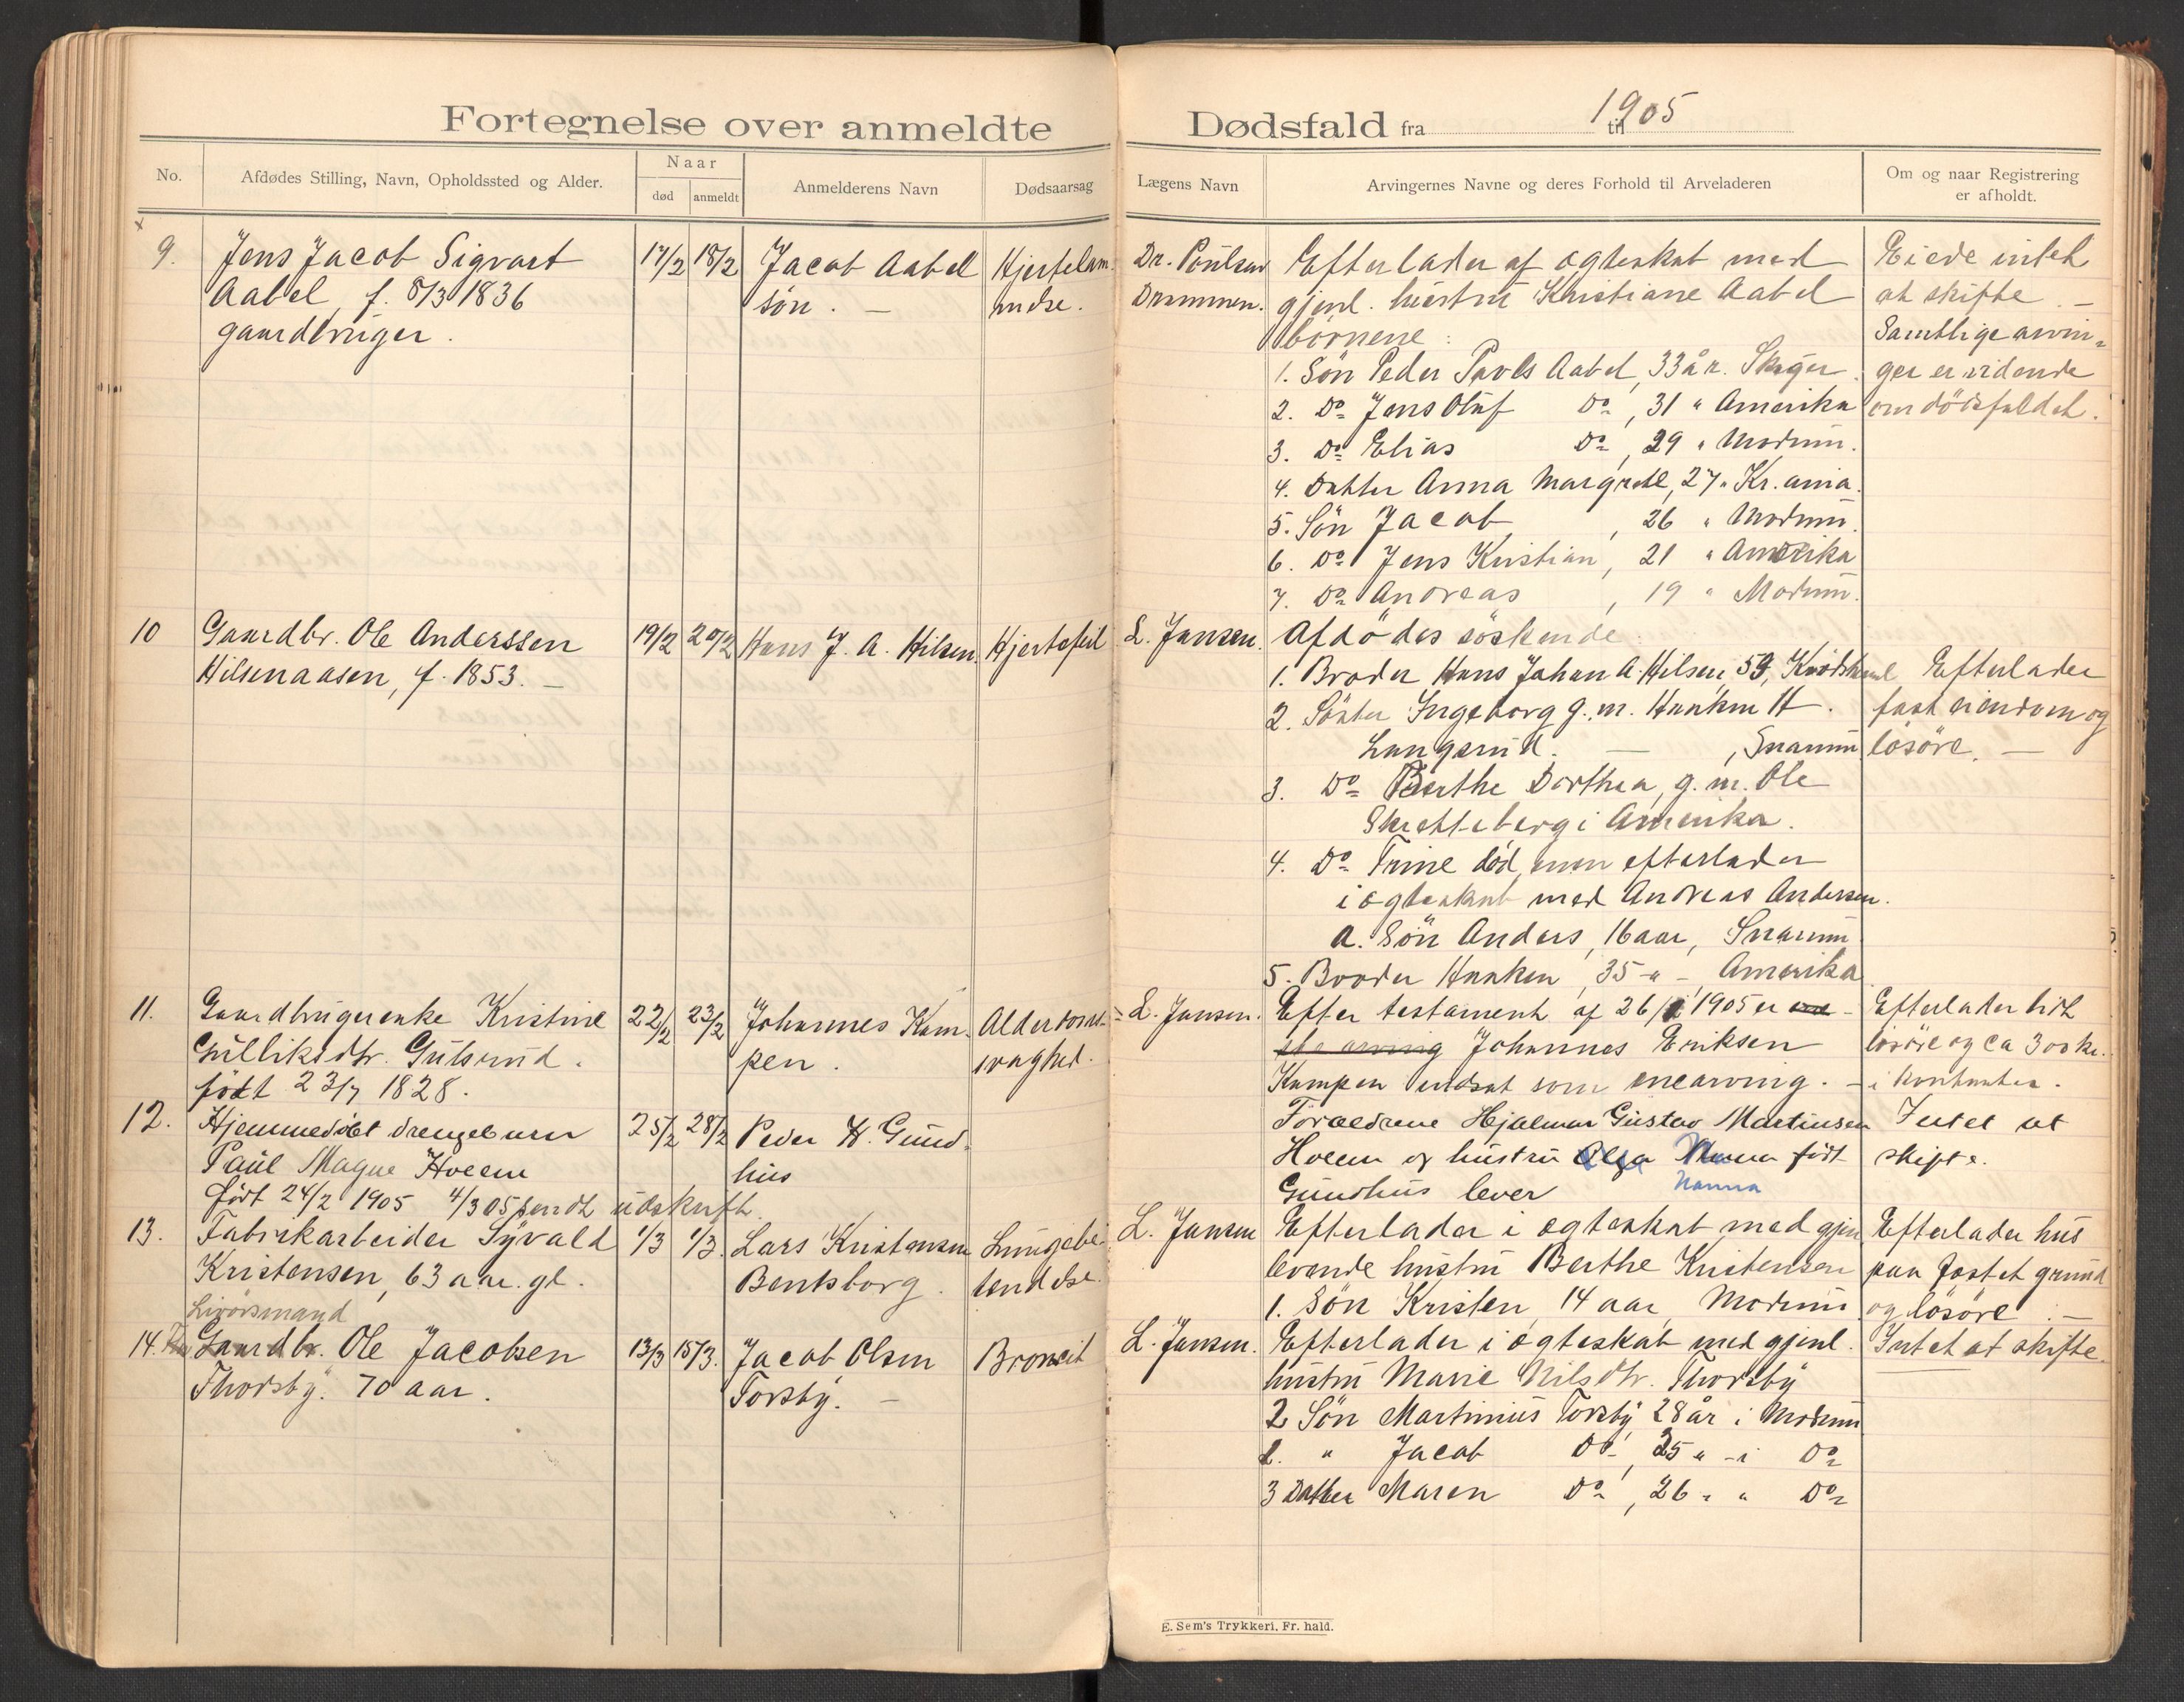 Fortegnelse over anmeldte
No.
Afdødes Stilling, Navn, Opholdssted og Alder.
Naar
død
anmeldt
Anmelderens Navn
Dødsaarsag
9.
Jens Jacob Sigvart
Aabel, f. 8/3 1836
gaardbruger.
17/2
18/2
Jacob Aabel
søn. –
Hjertelam-
melse.
10
Gaardbr. Ole Anderssen
Hilsenaasen, f. 1853. –
19/2
20/2
Hans J. A. Hilsen.
Hjertefeil
11.
Gaardbrugerenke Kristine
Gulliksdtr. Gulsrud.
født 23/7 1828.
22/2
23/2
Johannes Kam-
pen.
Alderdoms-
svaghed.
12.
Hjemmedøbt drengebarn
Paul Magne Hveem
født 24/2 1905 4/3 05 sendt udskrift.
25/2
28/2
Peder H. Gund-
hus
13.
Fabrikarbeider Syvald
Kristensen, 63 aar. gl.
1/3
1/3.
Lars Kristensen
Bentsborg.
Lungebe-
tendelse.
Livørsmand
14.
Gaardbr. Ole Jacobsen
Thorsby. 70 aar.
13/3
15/3.
Jacob Olsen
Torsby. –
Bronkit
1905
Dødsfald fra til
Lægens Navn
Arvingernes Navne og deres Forhold til Arveladeren
Om og naar Registrering
er afholdt.
Dr. Poulsen
Drammen.
Efterlader af ægteskab med
gjenl. hustru Kristiane Aabel
børnene:
1. Søn Peder Pavels Aabel, 33 år. Skoger.
2. Do Jens Oluf Do, 31 " Amerika
3. Do Elias Do, 29 " Modum.
4. Datter Anna Margrete, 27 " Kr.ania.
5. Søn Jacob, 26 " Modum.
6. Do Jens Kristian, 21 " Amerika
7. Do Andreas, 19 " Modum.
Eiede intet
at skifte. –
Samtlige arvin-
ger er vidende
om dødsfaldet.
L. Jansen.
Afdødes søskende:
1. Broder Hans Johan A. Hilsen, 59, Krødsherred
2. Søster Ingeborg g. m. Haaken H.
Langerud. –, Snarum
3. Do Berthe Dorthea, g. m. Ole
Skretteberg i Amerika.
4. Do Trine død, men efterlader
i ægteskab med Andreas Andersen.
a. Søn Anders, 16 aar, Snarum
5. Broder Haaken, 35 " – Amerika
Efterlader
fast eiendom og
løsøre. –
L. Jansen.
Efter testament af 26/1 1905 er ene-
ste arving Johannes Eriksen
Kampen indsat som enearving. –
Efterlader lidt
løsøre og ca 300 kr.
i kontanter.
Forældrene Hjalmar Gustav Martinsen
Hveem og hustru Olga født
Nanna
Gundhus lever
Intet at
skifte.
L. Jansen
Efterlader i ægteskab med gjen
levende hustru Berthe Kristensen
1. Søn Kristen, 14 aar, Modum
Efterlader hus
paa festet grund
og løsøre. –
L. Jansen.
Efterlader i ægteskab med gjenl.
hustru Marie Nilsdtr. Thorsby
Søn Martinius Torsby, 28 år i Modum
2. " Jacob Do, 25 " - i Do
3 Datter Maren Do, 26 " " Do
Intet at skifte.
E. Sem's Trykkeri, Fr. hald.